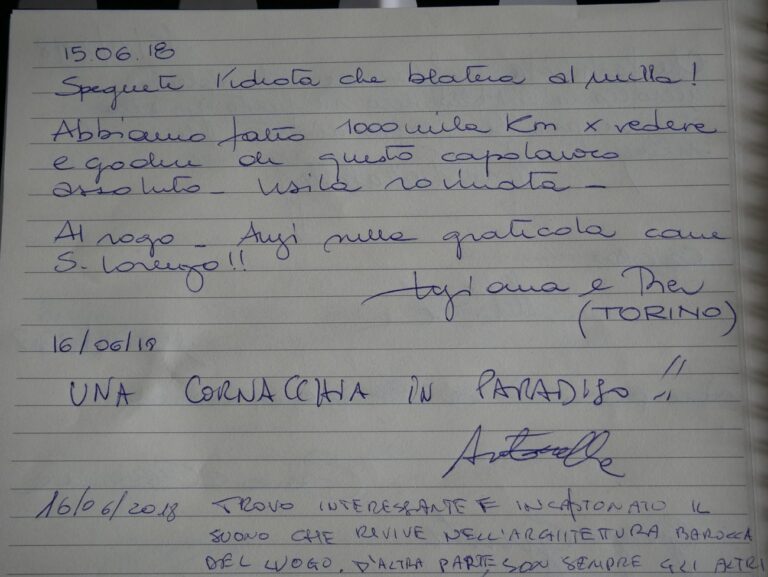 15.06.18
Spegnete l'idiota che blatera al nulla!
Abbiamo fatto 1000mila Km x vedere
e godere di questo capolavoro
assoluto - visita rovinata -
Al rogo - Anzi sulla graticola come
S. Lorenzo!!
e
(TORINO)
16/06/18
UNA CORNACCHIA IN PARADISO !!
Antonella
16/06/2018 TROVO INTERESSANTE E INCASTONATO IL
SUONO CHE RIVIVE NELL'ARCHITETTURA BAROCCA
DEL LUOGO. D'ALTRA PARTE, SON SEMPRE GLI ALTRI